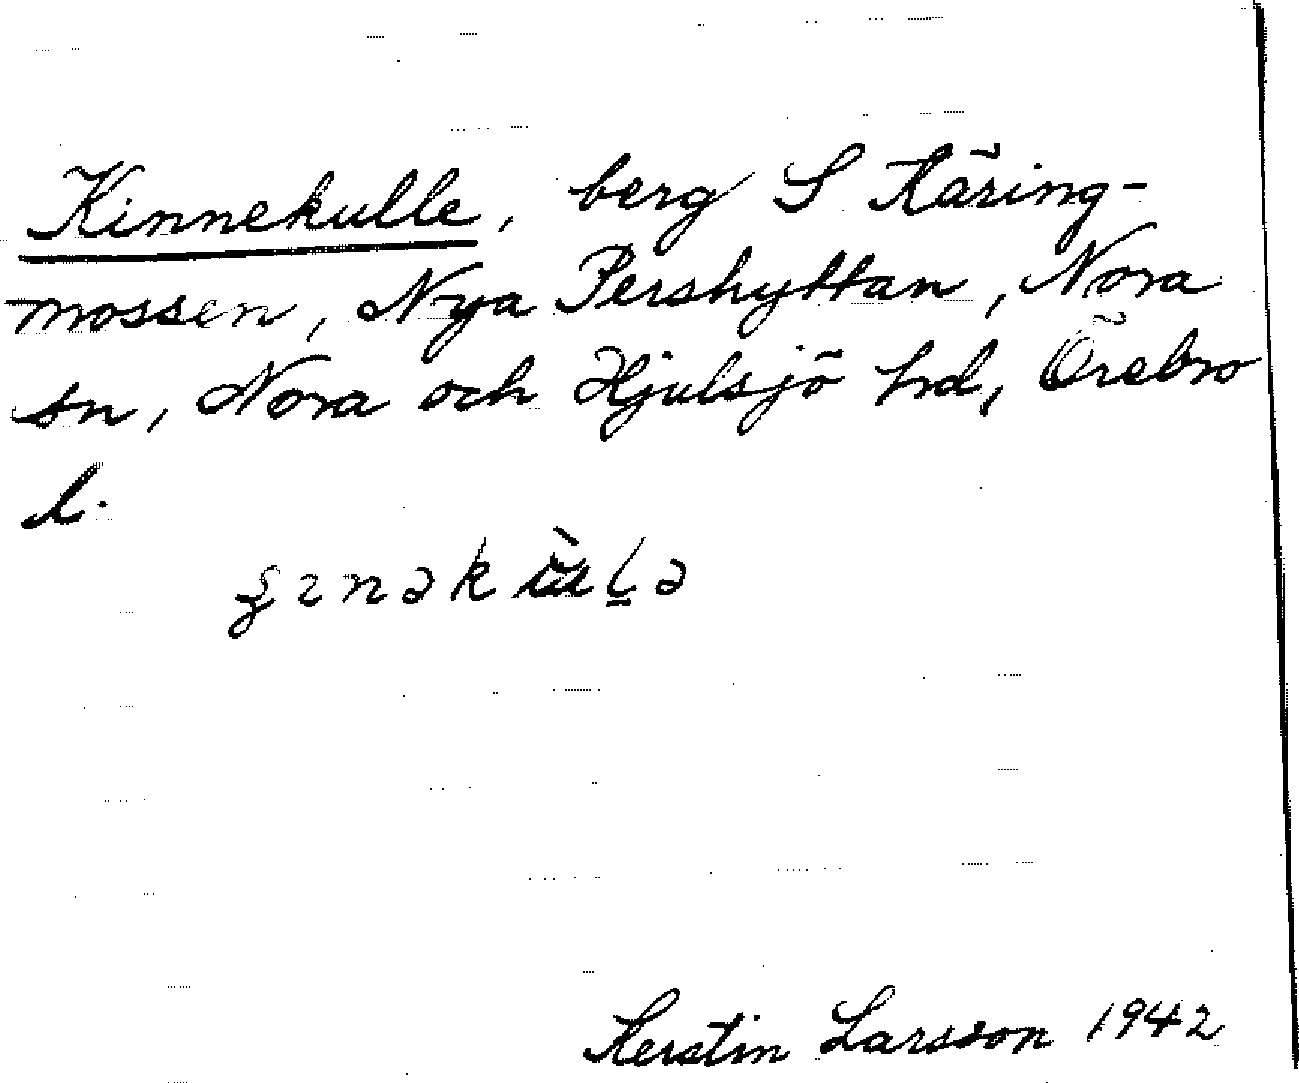 Kinnekulle, berg S Käring-
mossen, Nya Pershyttan, Nora
sn, Nora och Hjulsjö hd, Örebro
l.
Kerstin Larsson 1942